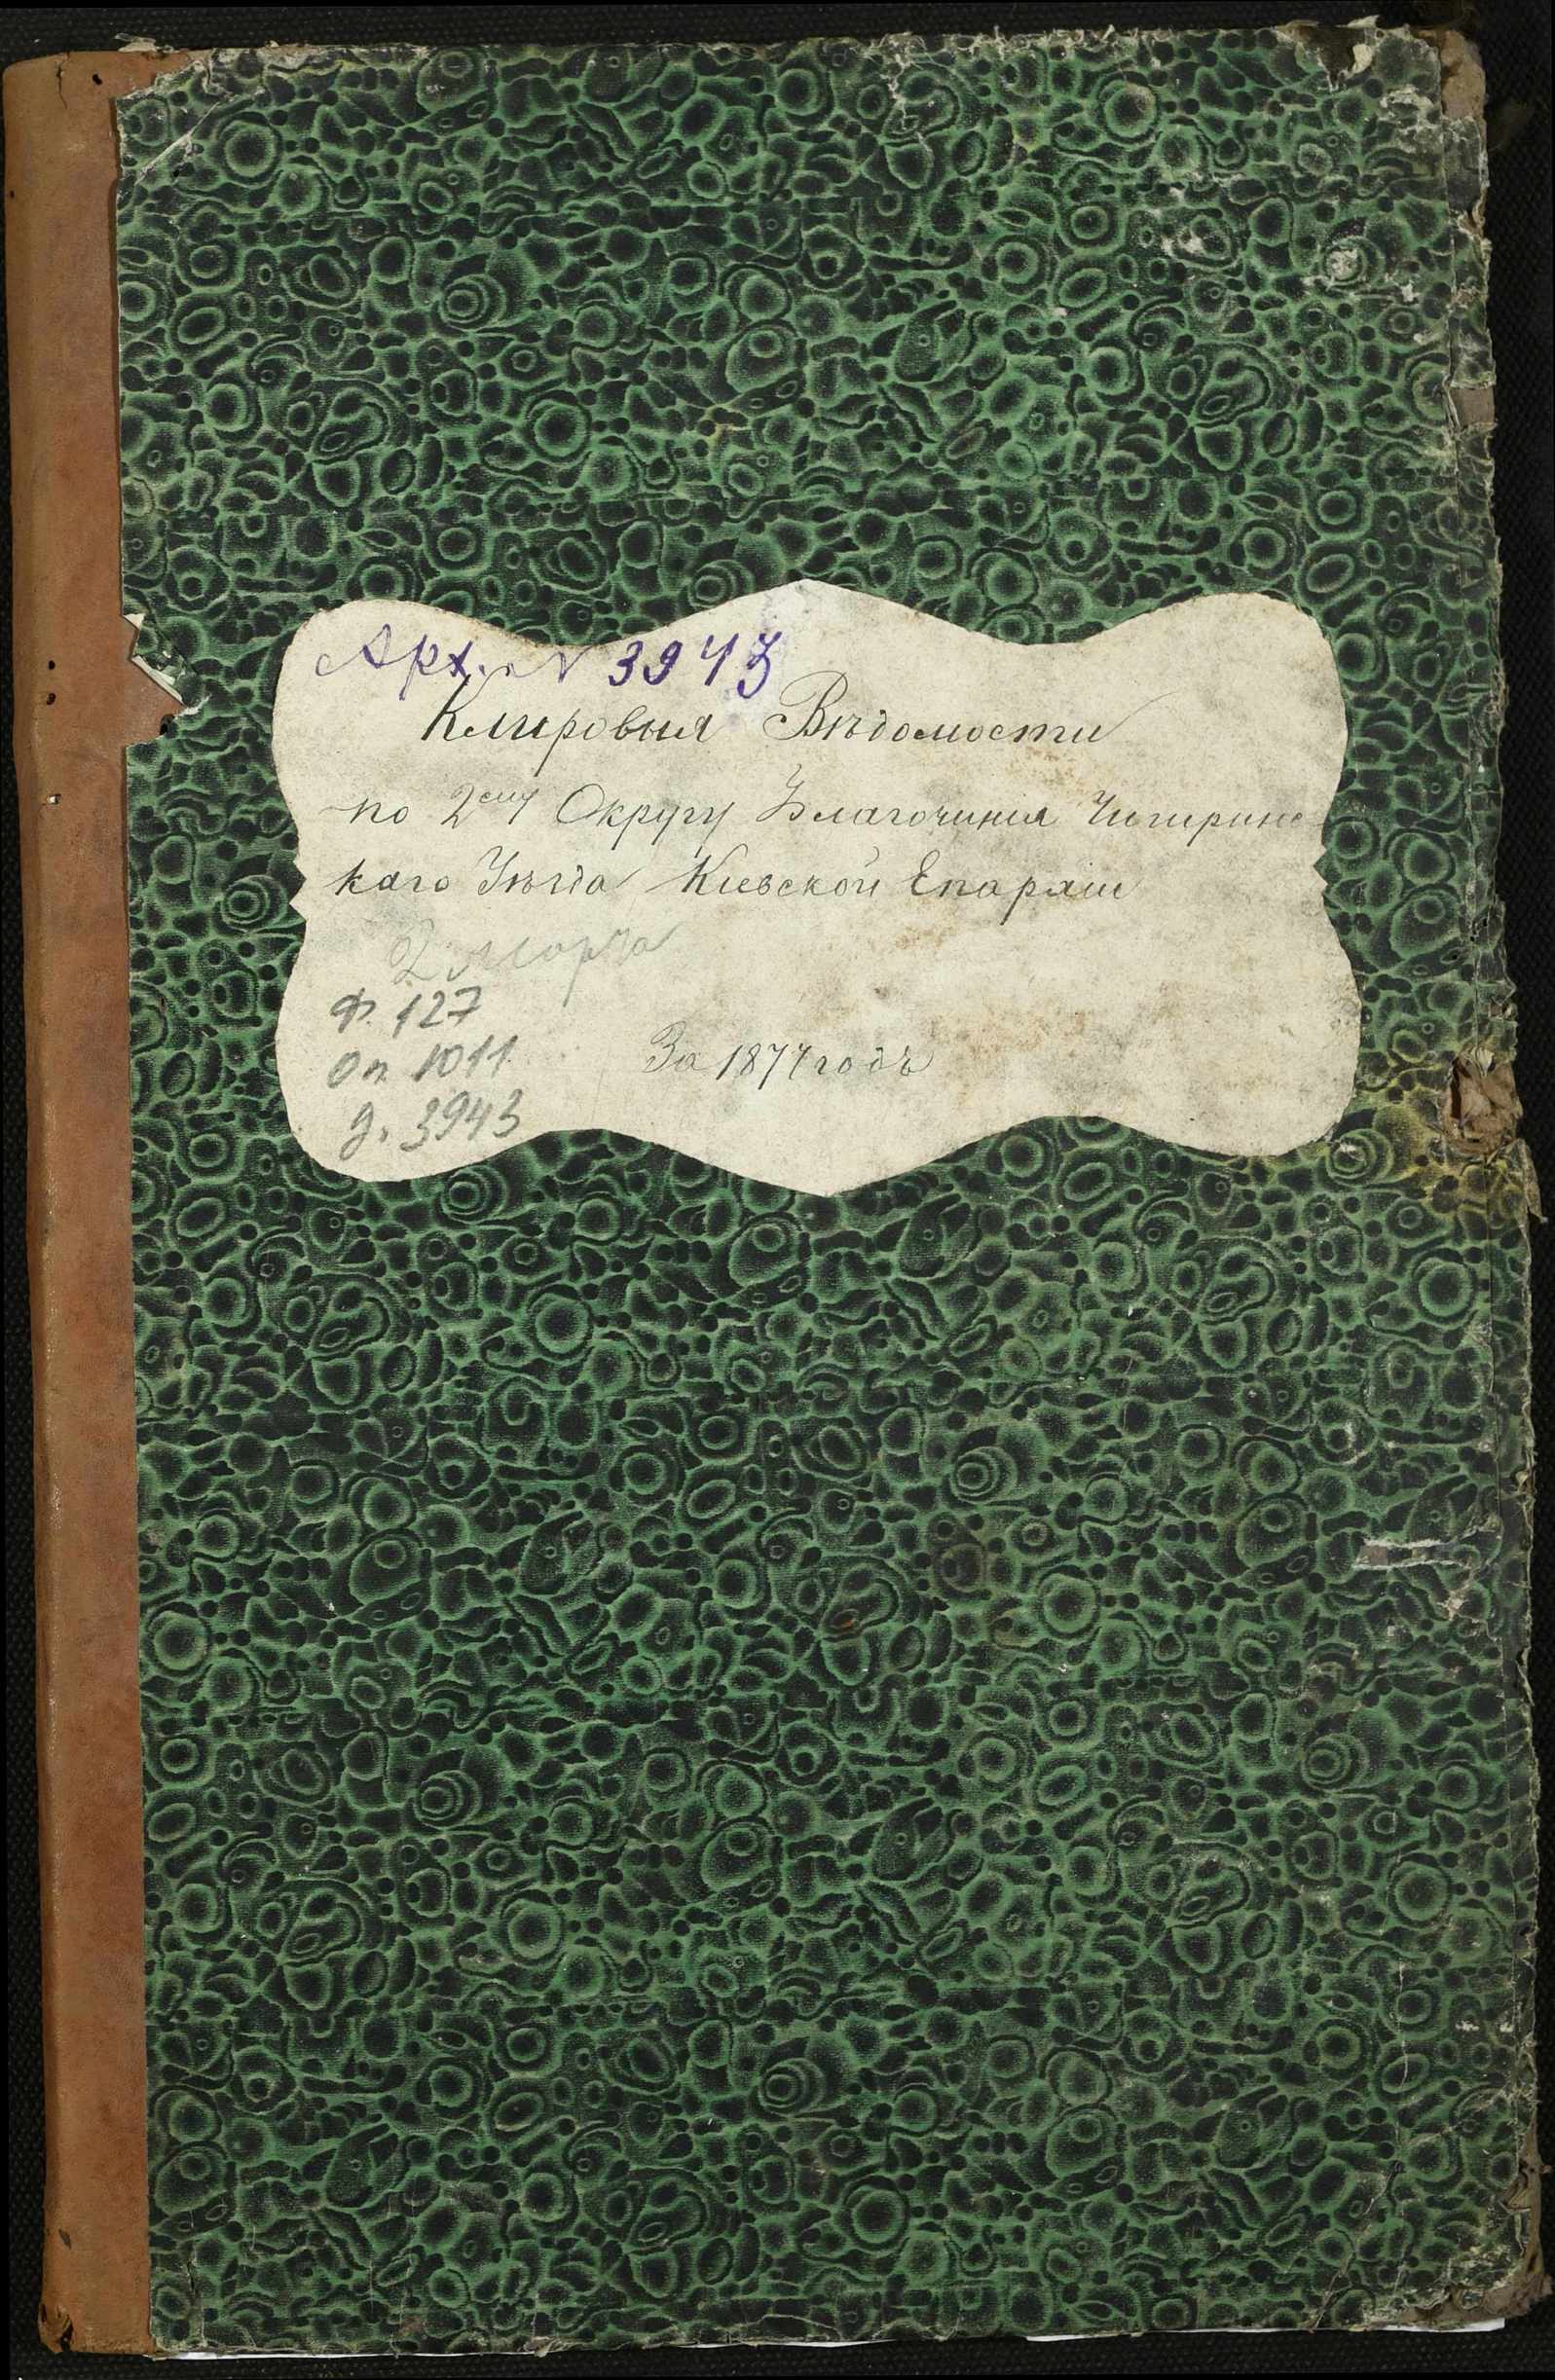 Арх. № 3943
Клировыя Вѣдомости
по 2ему Округу Благочинія Чигиринс
каго Уѣзда Кіевской Епархіи
2
Ф. 127
Оп 1011
д. 3943
За 1877 годъ